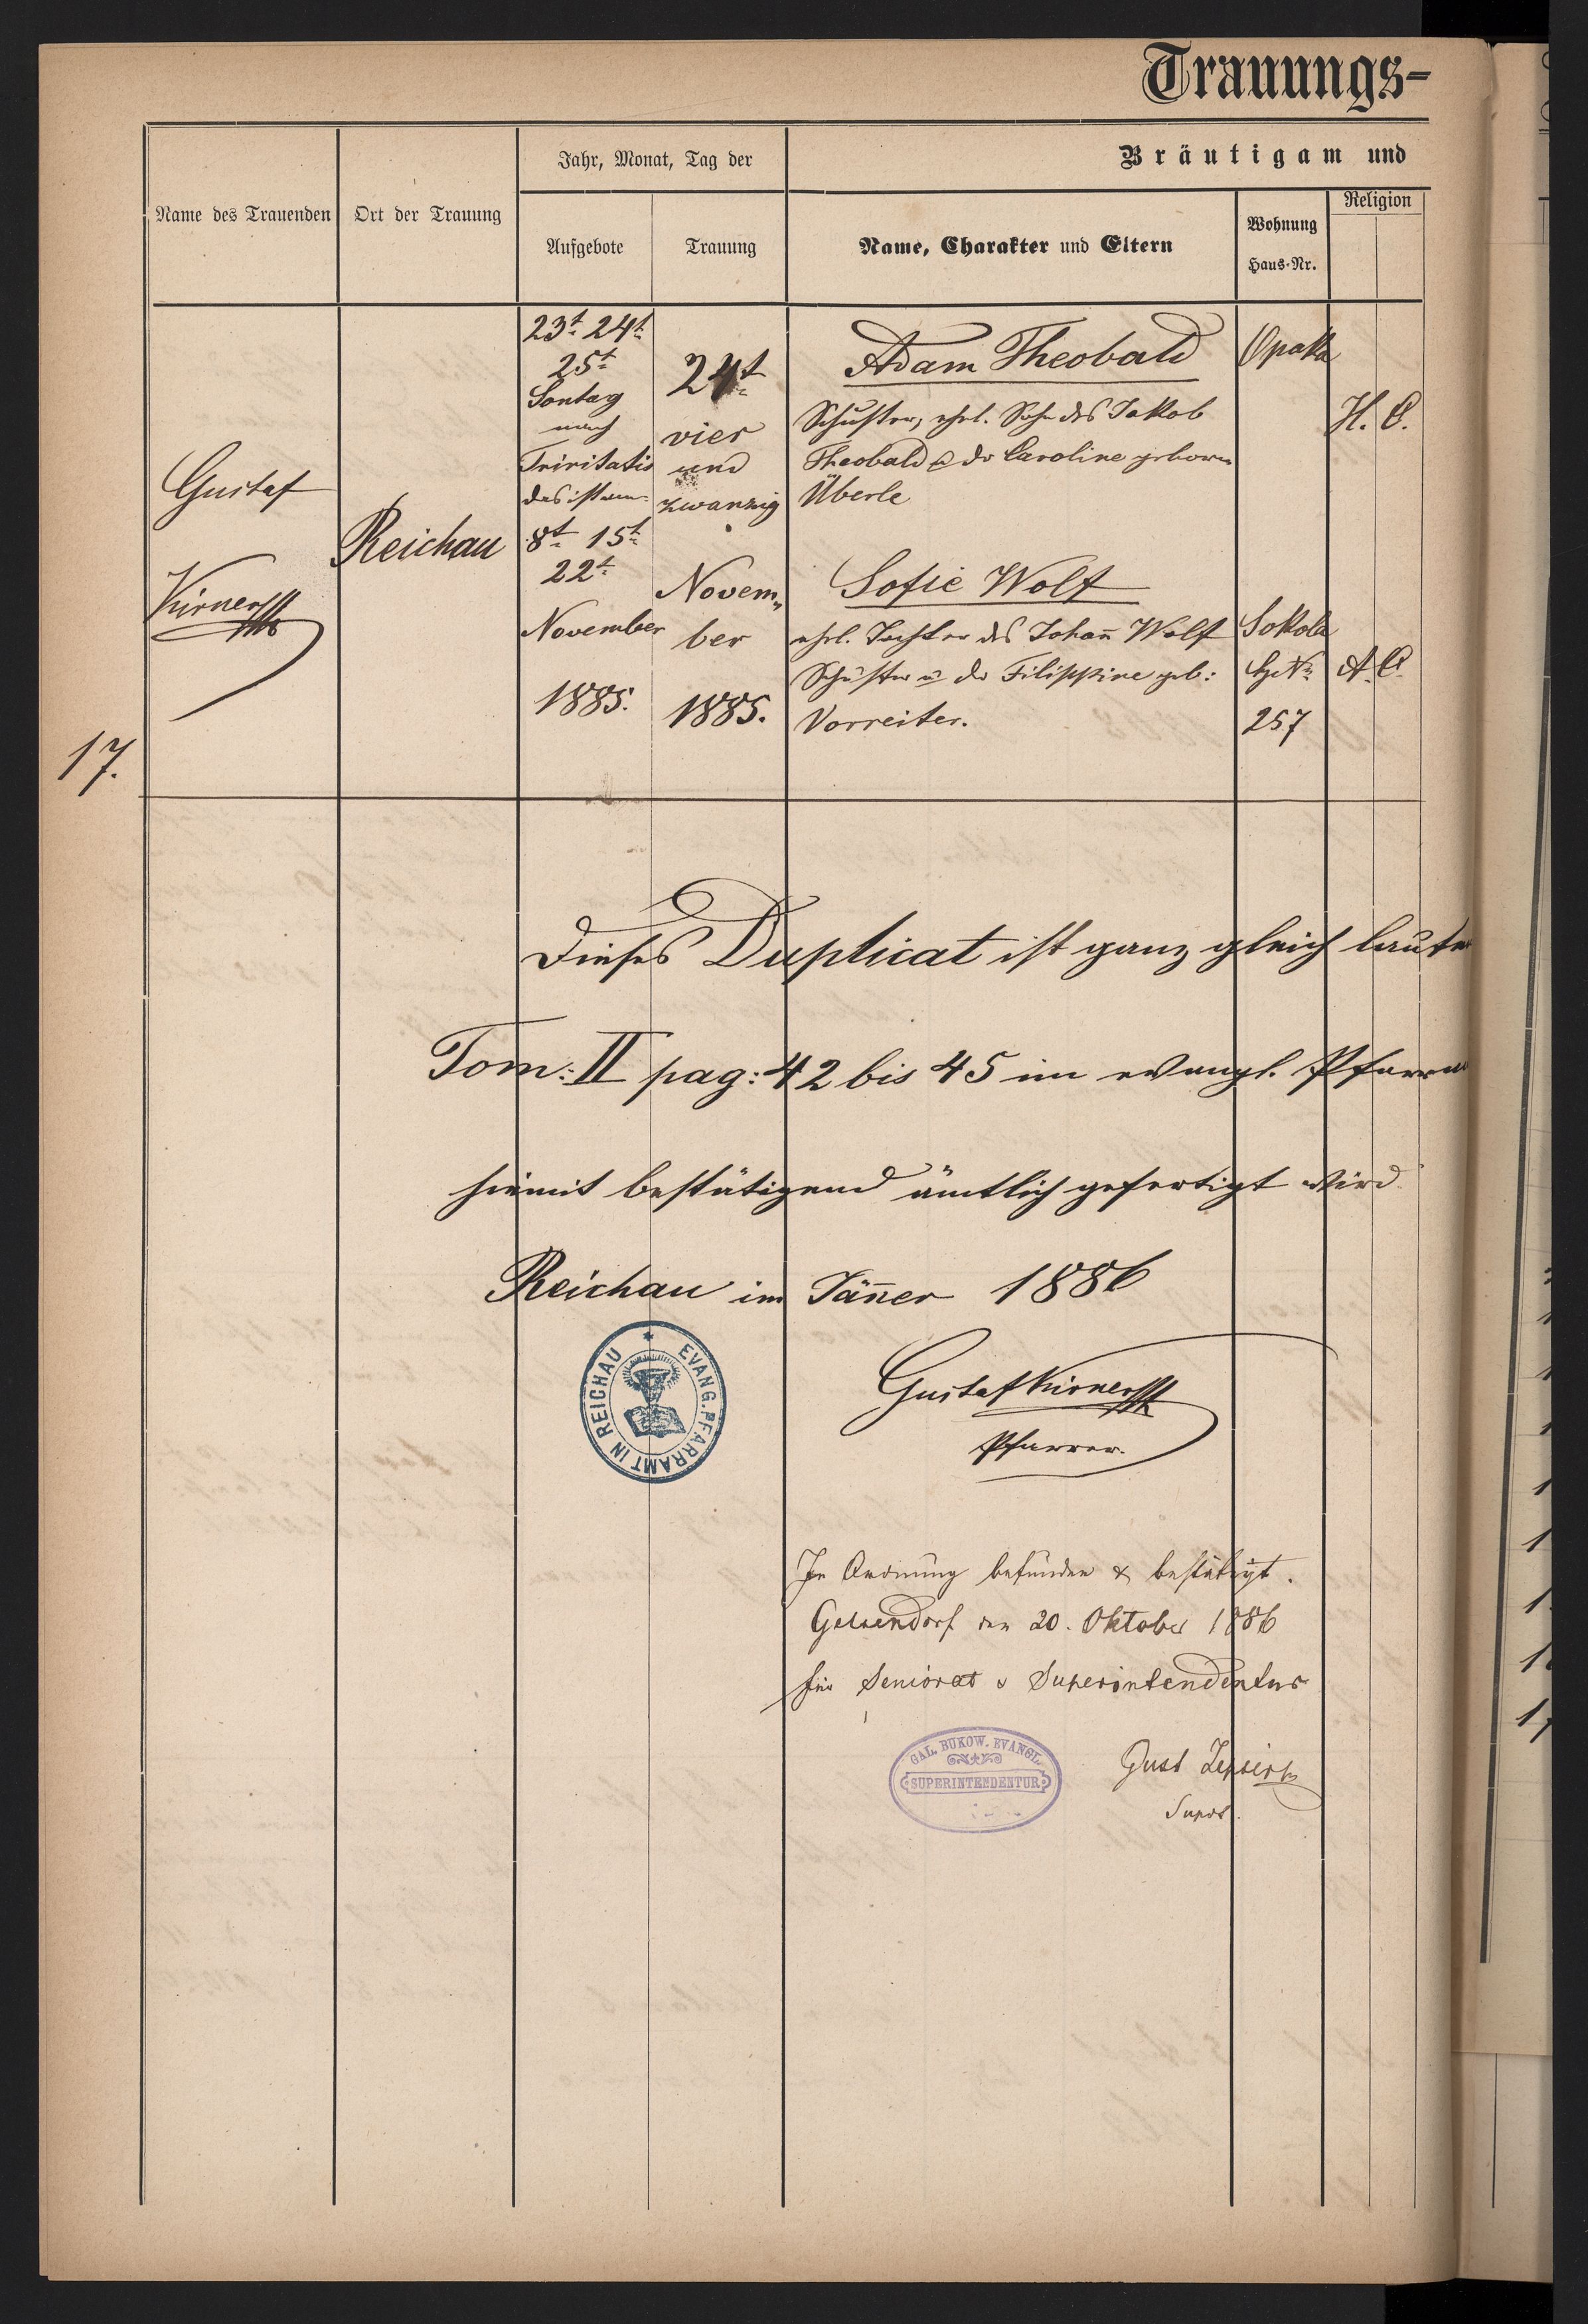 Trauungs-
Jahr, Monat, Tag der
Bräutigam und
Name des Trauenden
Ort der Trauung
Aufgebote
Trauung
Name, Charakter und Eltern
Wohnung
Haus-Nr.
Religion
17.
Gustaf
Kirner
Reichau
23t. 24t.
25t.
Sontag
nach
Trinitatis
das ist am
8t. 15t.
22t.
November
1885.
24t.
vier
und
zwanzig
Novem„
ber
1885.
Adam Theobald
Schuster, ehel. Sohn des Jakob
Theobald u der Caroline geboren
Überle
Opaka
H. C.
Sofie Wolf
ehel. Tochter des Johañ Wolf
Schuster u der Filippine geb:
Vorreiter.
Sokola
257
A. C.
Dieses Duplicat ist ganz gleich laute
Tom: II pag: 42 bis 45 im evangl. Pfarra
hiemit bestätigend ämtlich gefertigt wird
Reichau im Jäñer 1886
EVANG. PFARRAMT IN REICHAU
Gustaf Kirner
Pfarrer.
In Ordnung befunden & bestätigt.
Gelsendorf den 20. Oktober 1886
für Seniorat & Superintendentur
GAL. BUKOW. EVANGL.
SUPERINTENDENTUR
Gust
Supdt.